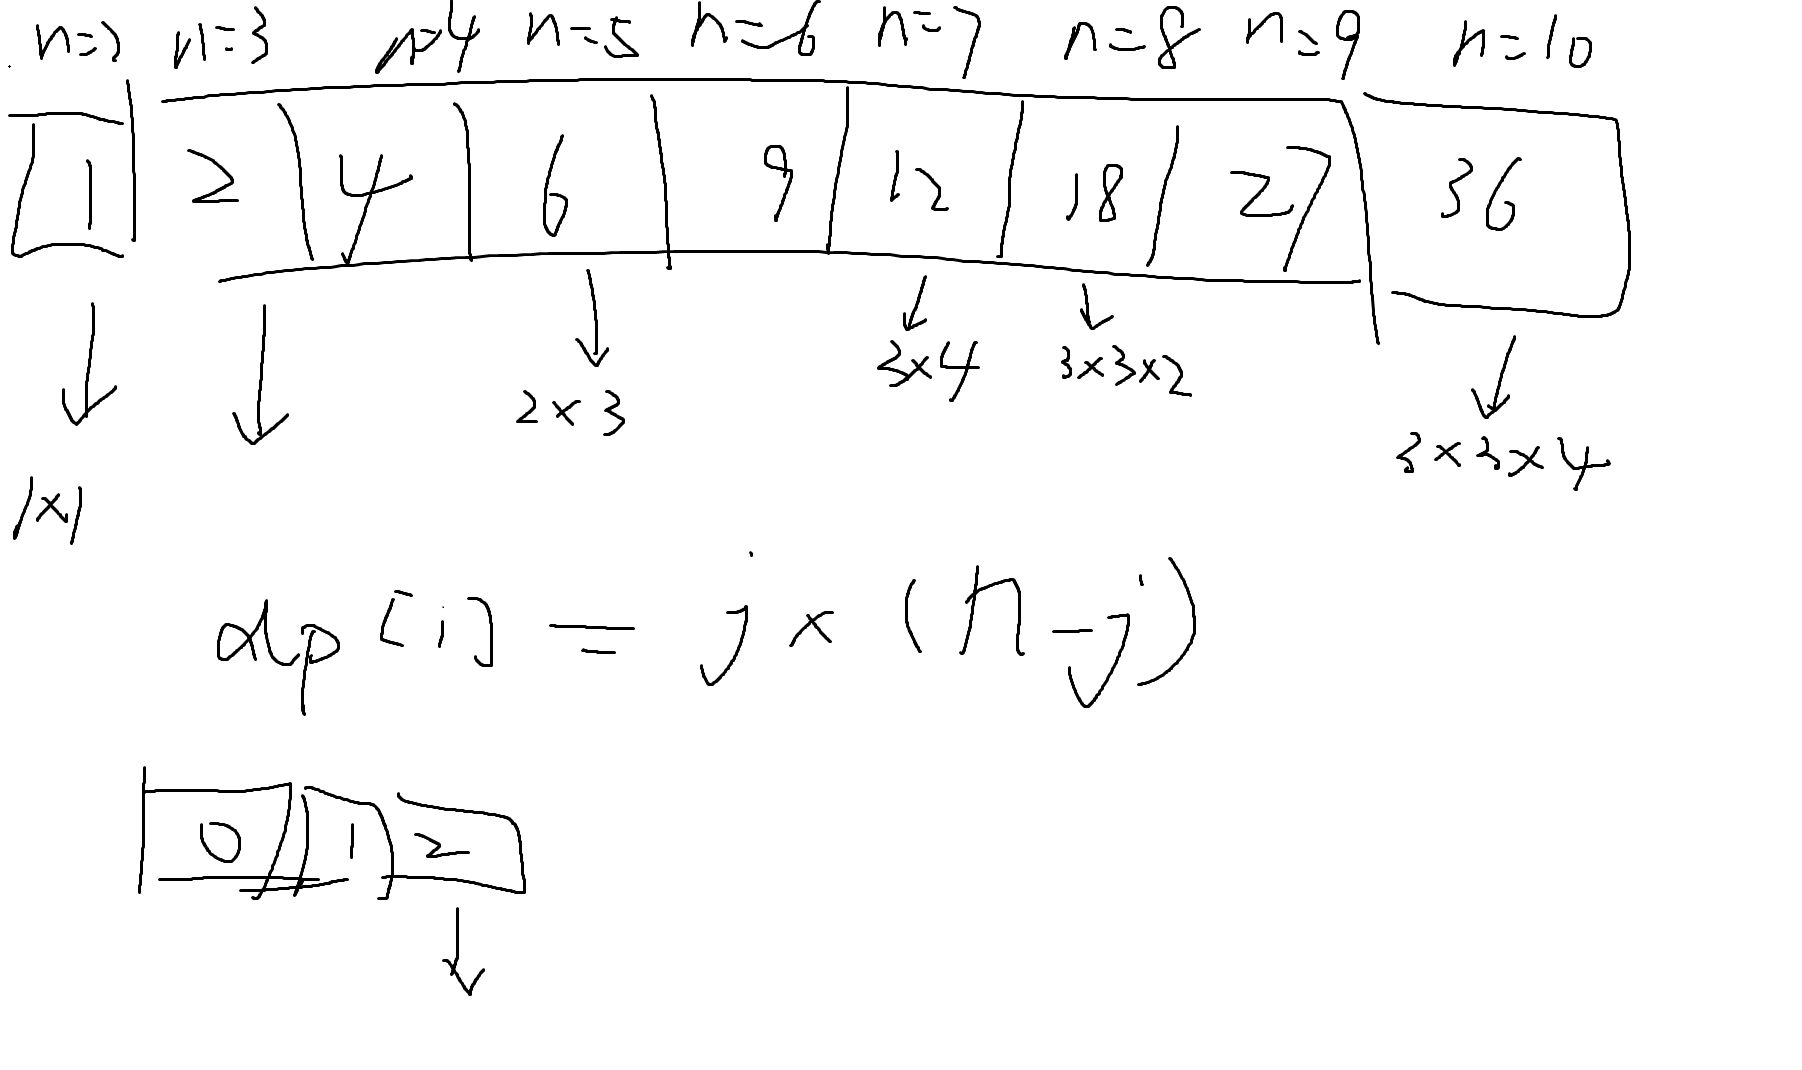 n=2 n=3 n=4 n=5 n=6 n=7 n=8 n=9 n=10
1 2 4 6 9 12 18 27 36
2×3 3×4 3×3×2
3×3×4
1×1
dp[i] = j × (n-j)
0 1 2